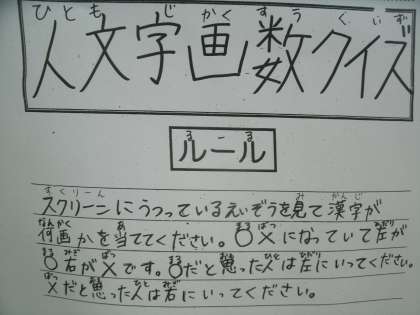 ひともじかくすうくいず
人文字画数クイズ
るーる
ルール
すくりーん み かんじ
スクリーンにうつっているえいぞうを見て漢字が
なんかく あ まる ばつ ひだり
何画かを当ててください。○×になっていて左が
まる みぎ ばつ まる おも ひと ひだり
○右が×です。○だと思った人は左にいってください。
ばつ おも ひと みぎ
×だと思った人は右にいってください。